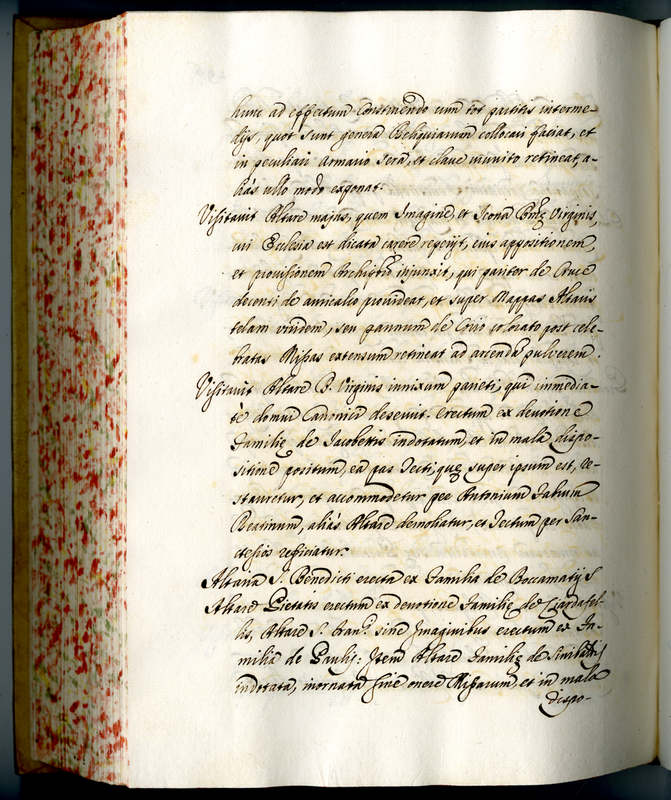 hunc ad effectum continendo cum tot partitis interme-
dijs, quot sunt genera Reliquiarum collocari faciat, et
in peculiari Armario serâ, et clave munito retineat, a-
liàs ullo modo exponat.
Visitavit Altare majus, quem Imagine, et Icona Virginis,
cui Ecclesia est dicata carere reperijt, eius appositionem,
et provisionem injunxit, qui pariter de Cruce
decenti de auricalco provideat, et super Mappas Altaris
telam viridem, seu pannum de colorato post cele-
bratas Missas extensum retineat ad arcendũ pulverem.
Visitavit Altare B. Virginis innixum parieti, qui immedia-
tè domui Canonicu deservit. erectum ex devotione
Familię de Jacobettis indotatum, et in mala dispo-
sitione positum, ea pars Tecti, quę super ipsum est, re-
stauretur, et accommodetur per Antonium
Reatinum, aliàs Altare demoliatur, et Tectum per San-
ctesios reficiatur.
Altaria S. Benedicti erecta ex Familia de Boccamatijs
Altare Pietatis erectum ex devotione Familię de
lis, Altare S. sine Imaginibus erectum ex Fa-
milia de Paulis: Item Altare Familię de
indotata, inornata sine onere Missarum, et in mala
dispo-